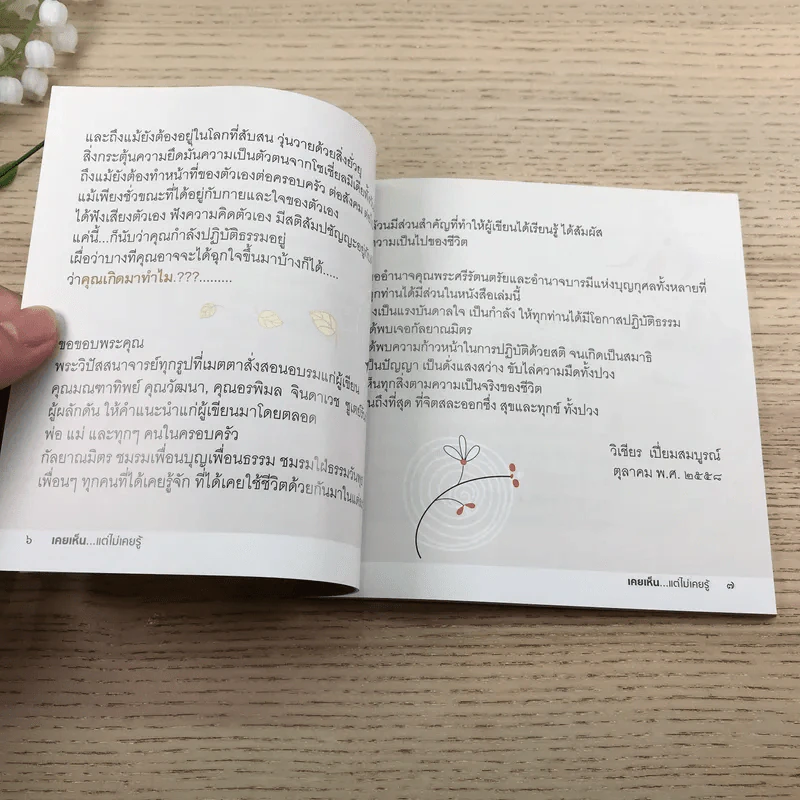 และถึงแม้ยังต้องอยู่ในโลกที่สับสน วุ่นวายด้วยสิ่งยั่วยุ
สิ่งกระตุ้นความยึดมั่นความเป็นตัวตนจากโซเชี่ยลมีเดีย
ถึงแม้ยังต้องทำหน้าที่ของตัวเองต่อครอบครัว ต่อสังคม
แม้เพียงชั่วขณะที่ได้อยู่กับกายและใจของตัวเอง
ได้ฟังเสียงตัวเอง ฟังความคิดตัวเอง มีสติสัมปชัญญะอยู่
แค่นี้...ก็นับว่าคุณกำลังปฏิบัติธรรมอยู่
เผื่อว่าบางทีคุณอาจจะได้ฉุกใจขึ้นมาบ้างก็ได้.....
ว่าคุณเกิดมาทำไม.???.........
ขอขอบพระคุณ
พระวิปัสสนาจารย์ทุกรูปที่เมตตาสั่งสอนอบรมแก่ผู้เขียน
คุณมณฑาทิพย์ คุณวัฒนา, คุณอรพิมล จินดาเวช
ผู้ผลักดัน ให้คำแนะนำแก่ผู้เขียนมาโดยตลอด
พ่อ แม่ และทุกๆ คนในครอบครัว
กัลยาณมิตร ชมรมเพื่อนบุญเพื่อนธรรม ชมรมใฝ่ธรรมวัน
เพื่อนๆ ทุกคนที่ได้เคยรู้จัก ที่ได้เคยใช้ชีวิตด้วยกันมาใน
๖ เคยเห็น...แต่ไม่เคยรู้
ล้วนมีส่วนสำคัญที่ทำให้ผู้เขียนได้เรียนรู้ ได้สัมผัส
ความเป็นไปของชีวิต
ขออำนาจคุณพระศรีรัตนตรัยและอำนาจบารมีแห่งบุญกุศลทั้งหลายที่
ทุกท่านได้มีส่วนในหนังสือเล่มนี้
เป็นแรงบันดาลใจ เป็นกำลัง ให้ทุกท่านได้มีโอกาสปฏิบัติธรรม
ได้พบเจอกัลยาณมิตร
ได้พบความก้าวหน้าในการปฏิบัติด้วยสติ จนเกิดเป็นสมาธิ
เป็นปัญญา เป็นดั่งแสงสว่าง ขับไล่ความมืดทั้งปวง
เห็นทุกสิ่งตามความเป็นจริงของชีวิต
จนถึงที่สุด ที่จิตสละออกซึ่ง สุขและทุกข์ ทั้งปวง
วิเชียร เปี่ยมสมบูรณ์
ตุลาคม พ.ศ. ๒๕๕๘
เคยเห็น...แต่ไม่เคยรู้ ๗